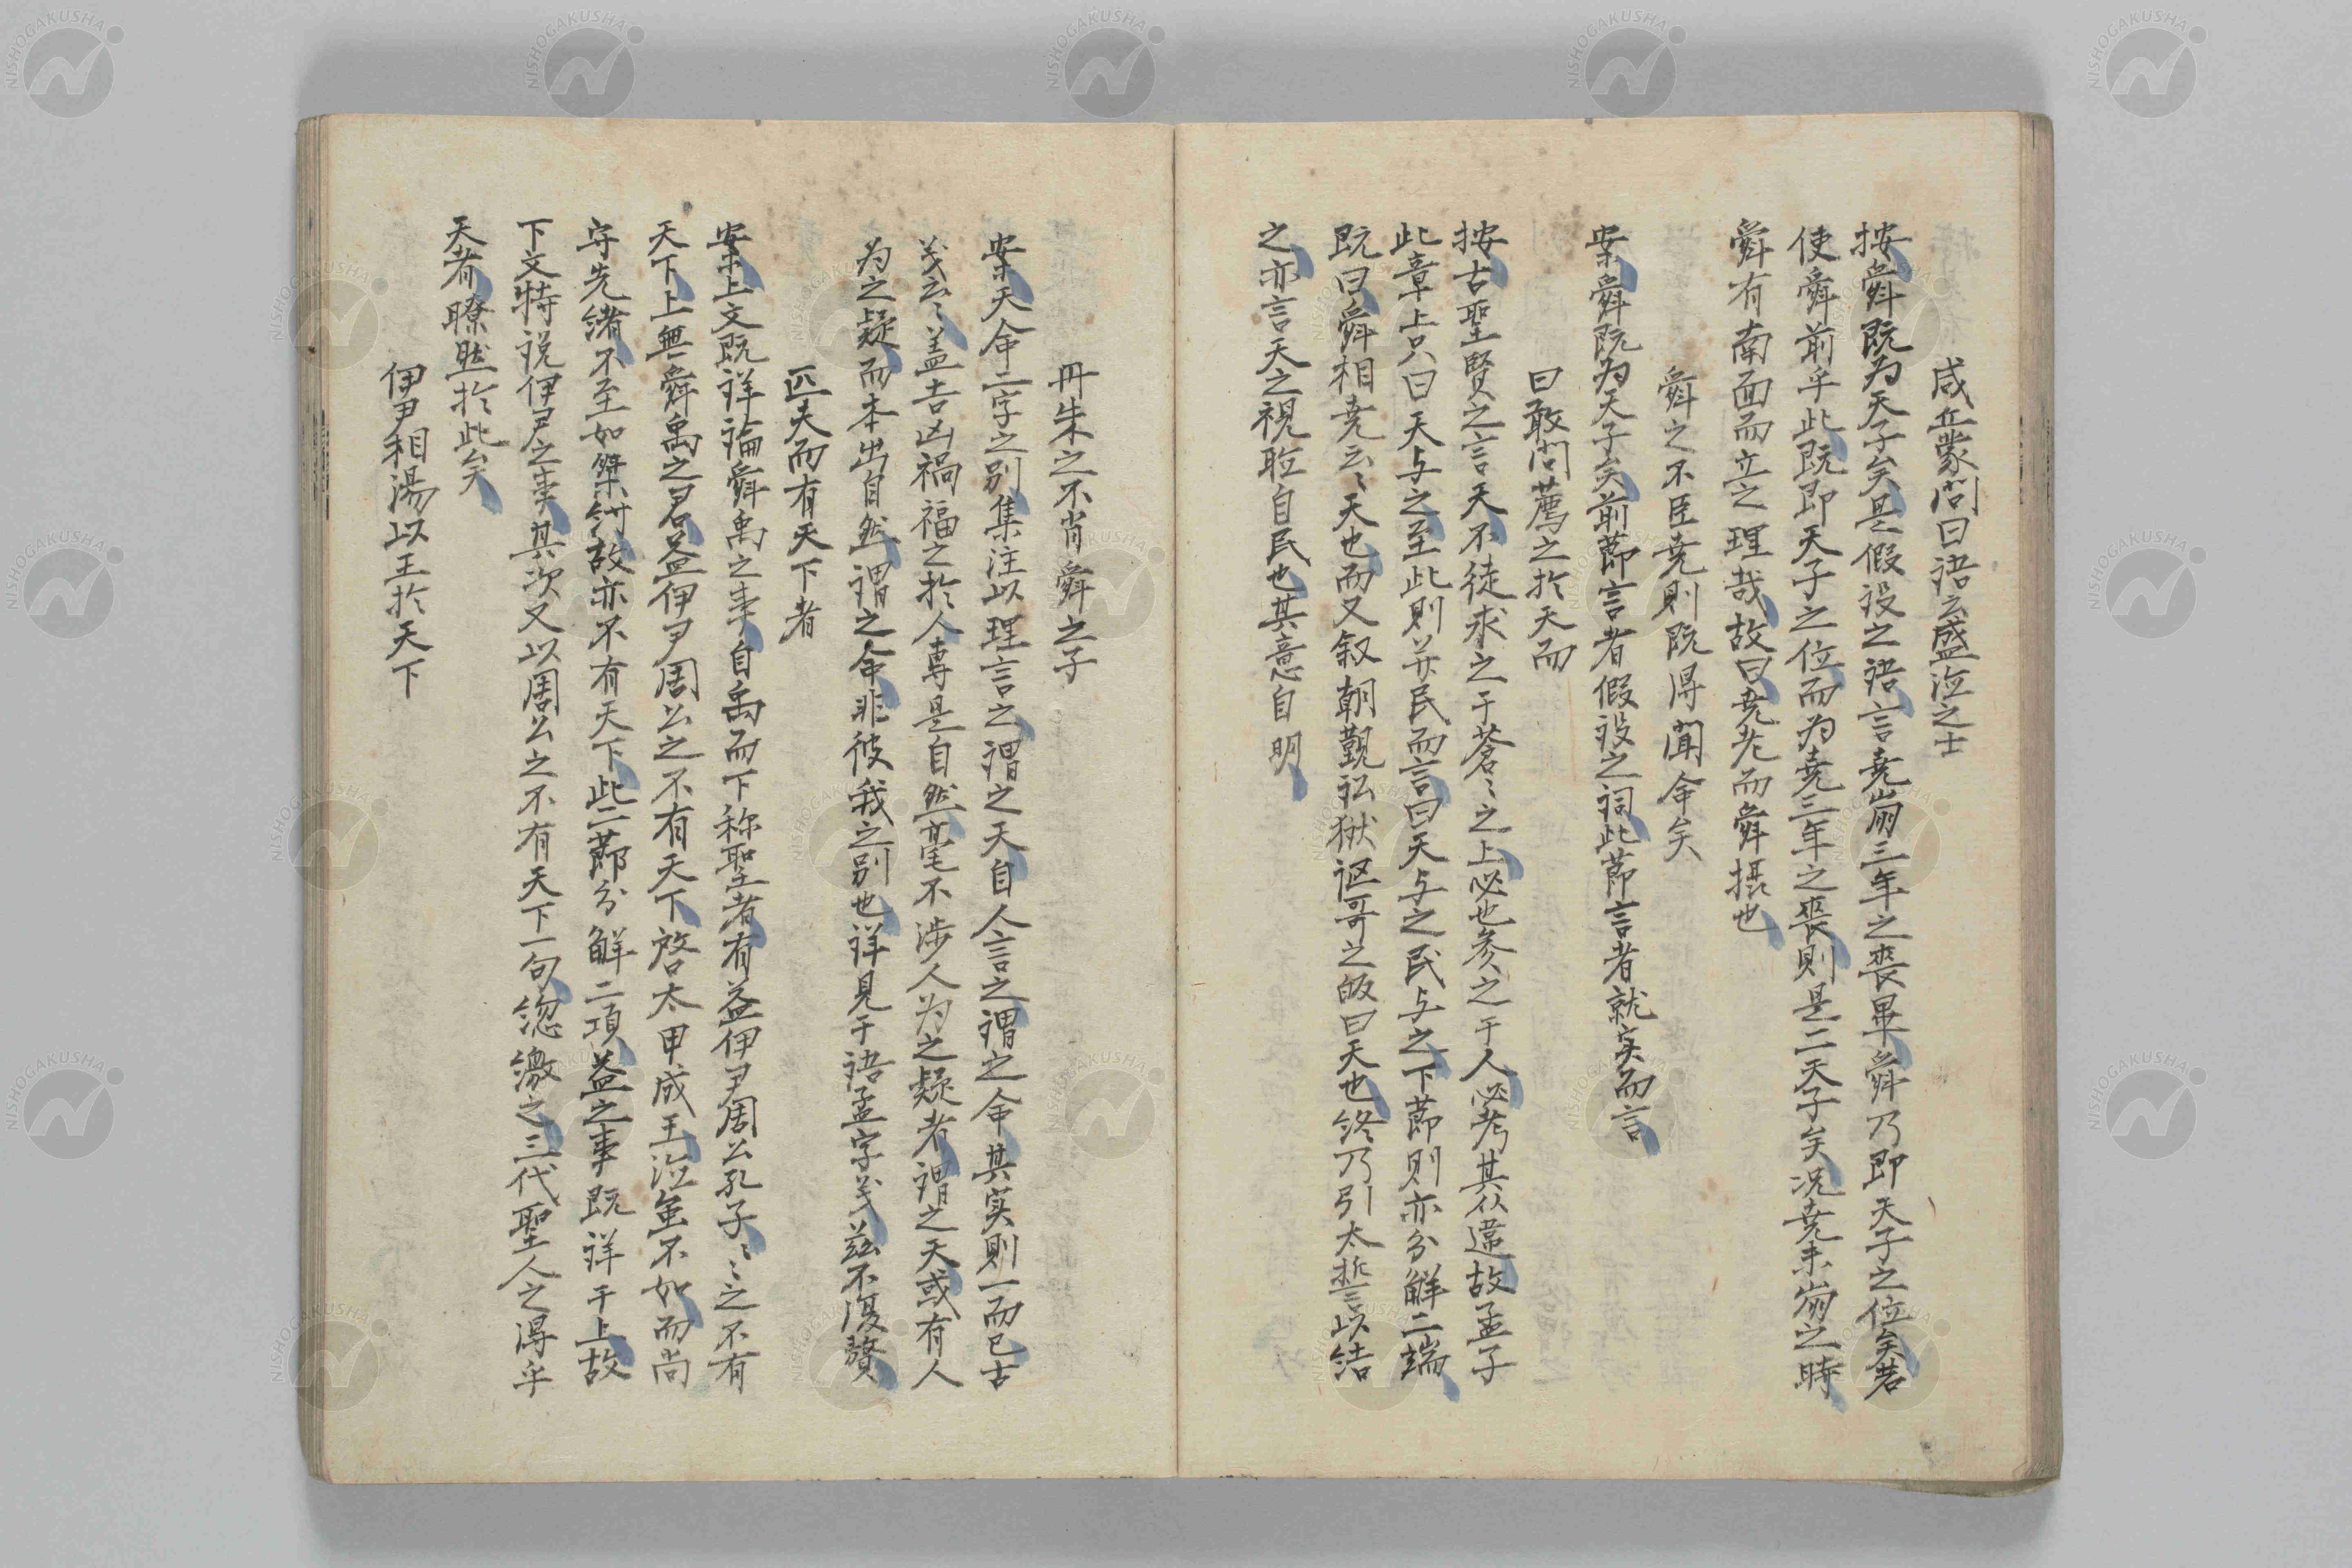 咸丘蒙問曰語云盛泣之士
按舜既為天子矣是假設之語言堯崩三年之喪畢舜乃即天子之位矣若
使舜前乎此既即天子之位而為堯三年之喪則是二天子矣況堯未崩之時
舜有南面而立之理哉故曰堯老而舜摂也
舜之不臣堯則既得聞命矣
案舜既為天子矣前莭言者假設之詞此莭言者就実而言
曰敢問薦之於天而
按古聖賢之言天不徒求之于蒼〻之上必也参之于人必考其从違故孟子
此章上只曰天与之至此則并民而言曰天与之民与之下莭則亦分觧二端
既曰舜相堯云〻天也而又叙朝覲訟獄謳哥之皈曰天也終乃引太誓以結
之亦言天之視聴自民也其意自明
丹朱之不肖舜之子
案天命二字之別集注以理言之謂之天自人言之謂之命其実則一而已古
义云〻盖吉凶禍福之於人専是自然毫不渉人为之疑者謂之天或有人
为之疑而本出自然謂之命非彼我之別也詳見于語孟字义茲不復贅
匹夫而有天下者
案上文既詳論舜禹之事自禹而下称聖者有益伊尹周公孔子〻之不有
天下上無舜禹之君益伊尹周公之不有天下啓太甲成王泣虽不如而尚
守先緒不至如桀紂故亦不有天下此二莭分觧二項益之事既詳于上故
下文特説伊尹之事其次又以周公之不有天下一句総繳之三代聖人之得乎
天者瞭然於此矣
伊尹相湯以王於天下
NISHOGAKUSHA